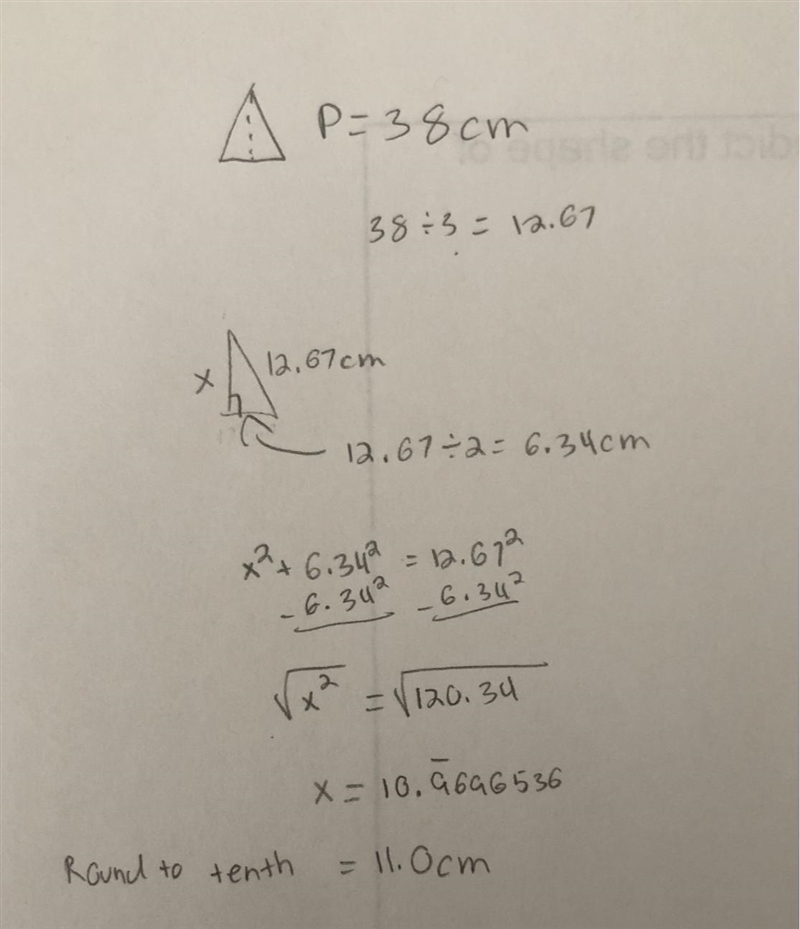 P = 38 cm
38 ÷ 3 = 12.67
x 12.67 cm
12.67 ÷ 2 = 6.34 cm
x² + 6.34² = 12.67²
- 6.34² - 6.34²
√x² = √120.34
x = 10.9̅696536
Round to tenth = 11.0 cm